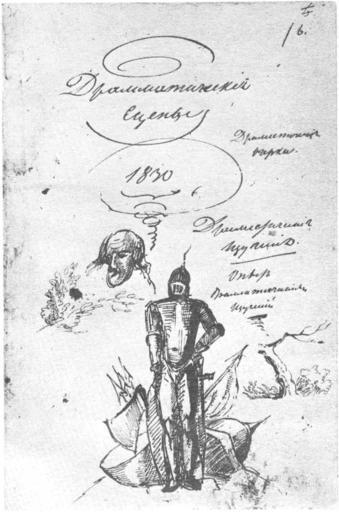 Драмматическія
Сцены
1830
Драматическіе
очерки.
Драматическія
изученія.
Опытъ
Драматическихъ
изученій